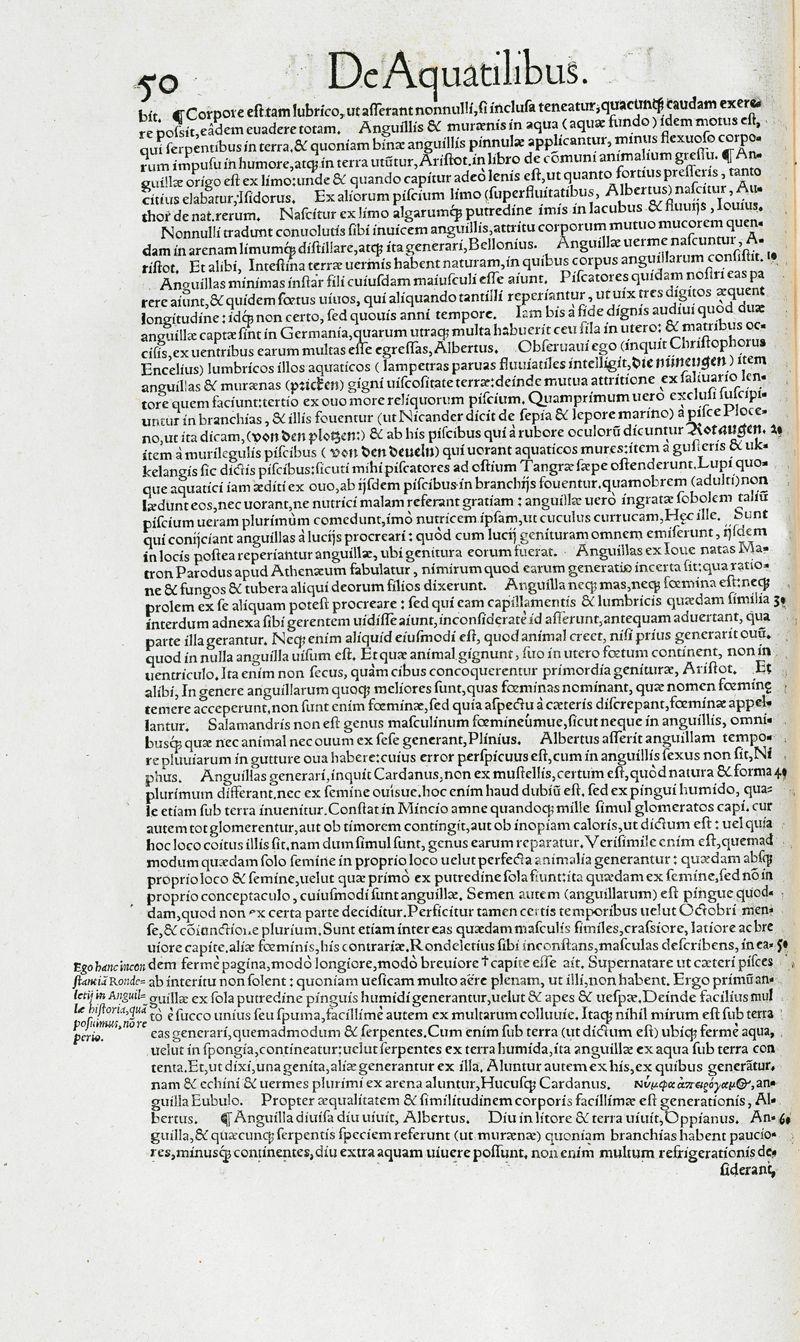 50
De Aquatilibus.
bit. ¶ Corpore est tam lubrico, ut asserant nonnulli, si inclusa teneatur, quacunq; caudam exere-
re possit, eàdem euadere totam. Anguillis & murænis in aqua (aquæ fundo) idem motus est,
qui serpentibus in terra, & quoniam binæ anguillis pinnulæ applicantur, minus flexuoso corpo-
rum impulsu in humore, atq; in terra utũtur, Aristot. in libro de cõmuni animalium gressu. ¶ An-
guillæ origo est ex limo: unde & quando capitur adeò lenis est, ut quanto fortius presseris, tanto
citius elabatur, Isidorus. Ex aliorum piscium limo (superfluitatibus, Albertus) nascitur, Au-
thor de nat. rerum. Nascitur ex limo algarumq; putredine imis in lacubus & fluuijs, Iouius.
Nonnulli tradunt conuolutis sibi inuicem anguillis, attritu corporum mutuo mucorem quen-
dam in arenam limumq; distillare, atq; ita generari, Bellonius. Anguillæ uerme nascuntur, A-
ristot. Et alibi, Intestina terræ uermis habent naturam, in quibus corpus anguillarum consistit. 10
Anguillas minimas instar fili cuiusdam maiusculi esse aiunt. Piscatores quidam nostri eas pa
rere aiunt, & quidem fœtus uiuos, qui aliquando tantilli reperiantur, ut uix tres digitos æquent
longitudine: idq; non certo, sed quouis anni tempore. Iam bis à fide dignis audiui quòd duæ
anguillæ captæ sint in Germania, quarum utraq; multa habuerit ceu fila in utero: & matribus oc-
cisis, ex uentribus earum multas esse egressas, Albertus. Obseruaui ego (inquit Christophorus
Encelius) lumbricos illos aquaticos (lampetras paruas fluuiatiles intelligit, die nünengen) item
anguillas & murænas (pricken) gigni uiscositate terræ: deinde mutua attritione ex saliuario len-
tore quem faciunt: tertio ex ouo more reliquorum piscium. Quamprimum uerò exclusi suscipi-
untur in branchias, & illis fouentur (ut Nicander dicit de sepia & lepore marino) à pisce Ploce-
no, ut ita dicam, (von den plotzen:) & ab his piscibus qui à rubore oculorũ dicuntur Rotaugen. 20
item à murilegulis piscibus (von den deueln) qui uorant aquaticos mures: item à gusteris & uk-
kelangis sic dictis piscibus: sicuti mihi piscatores ad ostium Tangræ sæpe ostenderunt. Lupi quo-
que aquatici iam æditi ex ouo, ab ijsdem piscibus in branchijs fouentur. quamobrem (adulti) non
lædunt eos, nec uorant, ne nutrici malam referant gratiam: anguillæ uerò ingratæ sobolem taliũ
piscium ueram plurimùm comedunt, imò nutricem ipsam, ut cuculus currucam, Hęc ille. Sunt
qui conijciant anguillas à lucijs procreari: quòd cum lucij genituram omnem emiserunt, ijsdem
in locis postea reperiantur anguillæ, ubi genitura eorum fuerat. Anguillas ex Ioue natas Ma-
tron Parodus apud Athenæum fabulatur, nimirum quod earum generatio incerta sit: qua ratio-
ne & fungos & tubera aliqui deorum filios dixerunt. Anguilla neq; mas, neq; fœmina est: neq;
prolem ex se aliquam potest procreare: sed qui eam capillamentis & lumbricis quædam similia 30
interdum adnexa sibi gerentem uidisse aiunt, inconsideratè id asserunt, antequam aduertant, qua
parte illa gerantur. Neq; enim aliquid eiusmodi est, quod animal creet, nisi prius generarit ouũ.
quod in nulla anguilla uisum est. Et quæ animal gignunt, suo in utero fœtum continent, non in
uentriculo. Ita enim non secus, quàm cibus concoquerentur primordia genituræ, Aristot. Et
alibi, In genere anguillarum quoq; meliores sunt, quas fœminas nominant, quæ nomen fœminę
temere acceperunt, non sunt enim fœminæ, sed quia aspectu à cæteris discrepant, fœminæ appel-
lantur. Salamandris non est genus masculinum fœmineúmue, sicut neque in anguillis, omni-
busq; quæ nec animal nec ouum ex sese generant, Plinius. Albertus asserit anguillam tempo-
re pluuiarum in gutture oua habere: cuius error perspicuus est, cum in anguillis sexus non sit, Ni
phus. Anguillas generari, inquit Cardanus, non ex mustellis, certum est, quòd natura & forma 40
plurimum differant. nec ex semine ouisue. hoc enim haud dubiũ est. sed ex pingui humido, qua-
le etiam sub terra inuenitur. Constat in Mincio amne quandoq; mille simul glomeratos capi. cur
autem tot glomerentur, aut ob timorem contingit, aut ob inopiam caloris, ut dictum est: uel quia
hoc loco coitus illis sit. nam dum simul sunt, genus earum reparatur. Verisimile enim est, quemad
modum quædam solo semine in proprio loco uelut perfecta animalia generantur: quædam absq;
proprio loco & semine, uelut quæ primò ex putredine sola fiunt: ita quædam ex semine, sed nõ in
proprio conceptaculo, cuiusmodi sunt anguillæ. Semen autem (anguillarum) est pingue quod-
dam, quod non ex certa parte deciditur. Perficitur tamen certis temporibus uelut Octobri men-
se, & cõiunctione plurium. Sunt etiam inter eas quædam masculis similes, crassiore, latiore ac bre
uiore capite. aliæ fœminis, his contrariæ. Rondeletius sibi inconstans, masculas describens, in ea- 50
dem fermè pagina, modò longiore, modò breuiore † capite esse ait. Supernatare ut cæteri pisces
ab interitu non solent: quoniam uesicam multo aëre plenam, ut illi, non habent. Ergo primũ an-
guillæ ex sola putredine pinguis humidi generantur, uelut & apes & uespæ. Deinde facilius mul
tò è succo unius seu spuma, facillimè autem ex multarum colluuie. Itaq; nihil mirum est sub terra
eas generari, quemadmodum & serpentes. Cum enim sub terra (ut dictum est) ubiq; fermè aqua,
uelut in spongia, contineatur: uelut serpentes ex terra humida, ita anguillæ ex aqua sub terra con
tenta. Et, ut dixi, una genita, aliæ generantur ex illa. Aluntur autem ex his, ex quibus generãtur.
nam & echini & uermes plurimi ex arena aluntur, Hucusq; Cardanus. Νύμφα ἀπειρόγαμος, an-
guilla Eubulo. Propter æqualitatem & similitudinem corporis facillimæ est generationis, Al-
bertus. ¶ Anguilla diuisa diu uiuit, Albertus. Diu in litore & terra uiuit, Oppianus. An- 60
guilla, & quæcunq; serpentis speciem referunt (ut murænæ) quoniam branchias habent paucio-
res, minusq; continentes, diu extra aquam uiuere possunt. non enim multum refrigerationis de-
siderant,
Ego hanc incon
stantiã Ronde-
letij in Anguil-
læ historia, quã
posuimus, nõ re
perio.